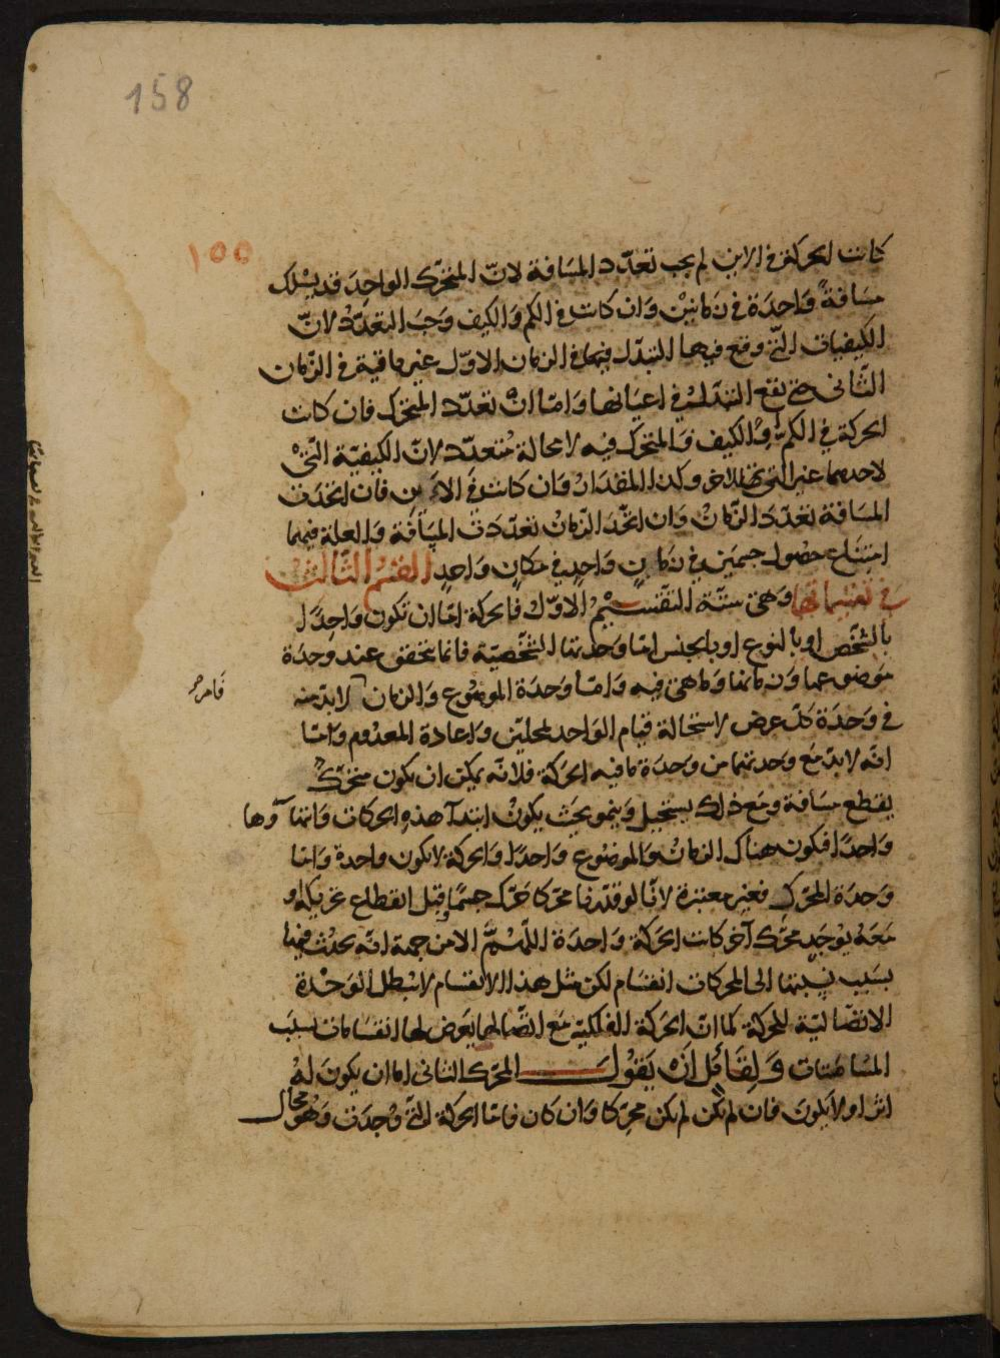 158
١٥٥
كانت الحركة في الاين لم يجب تعدّد المسَافة لانّ المتحرّك الواحِدَ قد يسْلك
مسَافةً وَاحدَة في زمَانيْن وَان كانت في الكم وَالكيف وَجبَ التعدّدُ لانّ
الكيفيات التّي وقع فيهما التبدّل فيها في الزمان الاوّل غير باقية في الزّمان
الثّاني حتى يقع التبدّل في اعيَانها وَامّا انْ تعدّد المتحرّك فان كانت
الحركة في الكم وَالكيف فالمتحرّك فيه لا محالة متعدّد لانّ الكيفيّة التّي
لاحدهما غير التي للاخر وكذا المقدَار وَان كانت في الاَين فان اتحدَت
المسَافة تعدّدَ الزّمانُ وَان اتحّدَ الزّمَانُ تعدّدَت المسَافة وَالعلة فيهما
امتنَاع حصُول جسمَين في زمَانٍ وَاحدٍ في مكانٍ وَاحدٍ القسْم الثّالث
في تقسيماتها وَهيَ ستّة التقسيْمُ الاوّل فالحركة امّا ان تكون وَاحِدَة
بالشخّص او بالنوع او بالجنس امّا وَحدتها الشخّصيّة فانما تتحقق عند وحدَة
مَوضوعها وَزمانها وَمَا هيَ فيه وَامّا وَحدَة الموضُوع وَالزمان لابدّ منه
فامر
في وَحدَة كلّ عرض لاستحَالة قيَام الوَاحد بمحلّين وَاعادة المعدُوم وَامّا
انّه لا بدّ مَع وَحدتهما من وَحدَة مَا فيه الحرَكة فلانّه يمكن ان يكون متحرّكٌ
يقطع مسَافة وَمَع ذلك يستحيل وَينمو بحَيث يكونُ ابتدآ هذهِ الحركات وَانتهَآؤها
وَاحدًا فيكون هناك الزمَان وَالموضُوع وَاحدًا وَالحركة لا يكون واحدة وَامّا
وَحدَة المحرّك فغير معتبَرة لانّا لو قدّرنا محرّكا حَرّك جسمًا وقبل انقطاع تحريكه او
مَعَهُ يُوجَد محرّك آخر كانت الحرَكة وَاحدَة اللّهُمّ الا من جهة انّه يحدُث فيها
بسَبب نِسبتها الى المحركات انقسَام لكن مثل هذا الانقسَام لا يُبطل الوَحْدَة
الاتصّاليّة للحرَكة كما انّ الحرَكة الفلكيّة مَع اتصّالها يَعرض لها انقسَامات بسبَب
المسَامتَات وَلِقَائل اَنْ يَقوُل المحرّك الثاني اما ان يكونَ لهُ
اثرٌ او لا يَكونَ فان لم يكن لم يكن محرّكا وَان كان فامّا الحركة التّي وُجدَت وَهُو محال